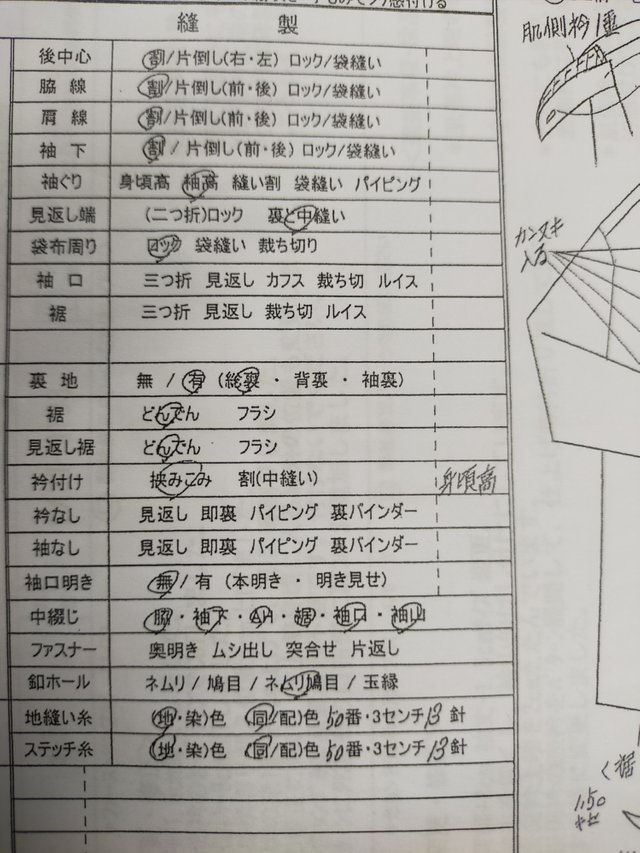 縫 製
後中心 割/片倒し(右・左) ロック/袋縫い
脇 線 割/片倒し(前・後) ロック/袋縫い
肩 線 割/片倒し(前・後) ロック/袋縫い
袖 下 割/片倒し(前・後) ロック/袋縫い
袖ぐり 身頃高 袖高 縫い割 袋縫い パイピング
見返し端 (二つ折)ロック 裏と中縫い
袋布周り ロック 袋縫い 裁ち切り
袖 口 三つ折 見返し カフス 裁ち切 ルイス
裾 三つ折 見返し 裁ち切 ルイス
裏 地 無 / 有 (総裏 ・ 背裏 ・ 袖裏)
裾 どんでん フラシ
見返し裾 どんでん フラシ
衿付け 挟みこみ 割(中縫い) 身頃高
衿なし 見返し 即裏 パイピング 裏バインダー
袖なし 見返し 即裏 パイピング 裏バインダー
袖口明き 無/有 (本明き ・ 明き見せ)
中綴じ 脇・袖下・AH・裾・袖口・袖山
ファスナー 奥明き ムシ出し 突合せ 片返し
釦ホール ネムリ / 鳩目 / ネムリ鳩目 / 玉縁
地縫い糸 (地・染)色 (同/配)色 50番・3センチ 13 針
ステッチ糸 (地・染)色 (同/配)色 50番・3センチ 13 針
肌側衿1重
カンヌキ
入る
く裾